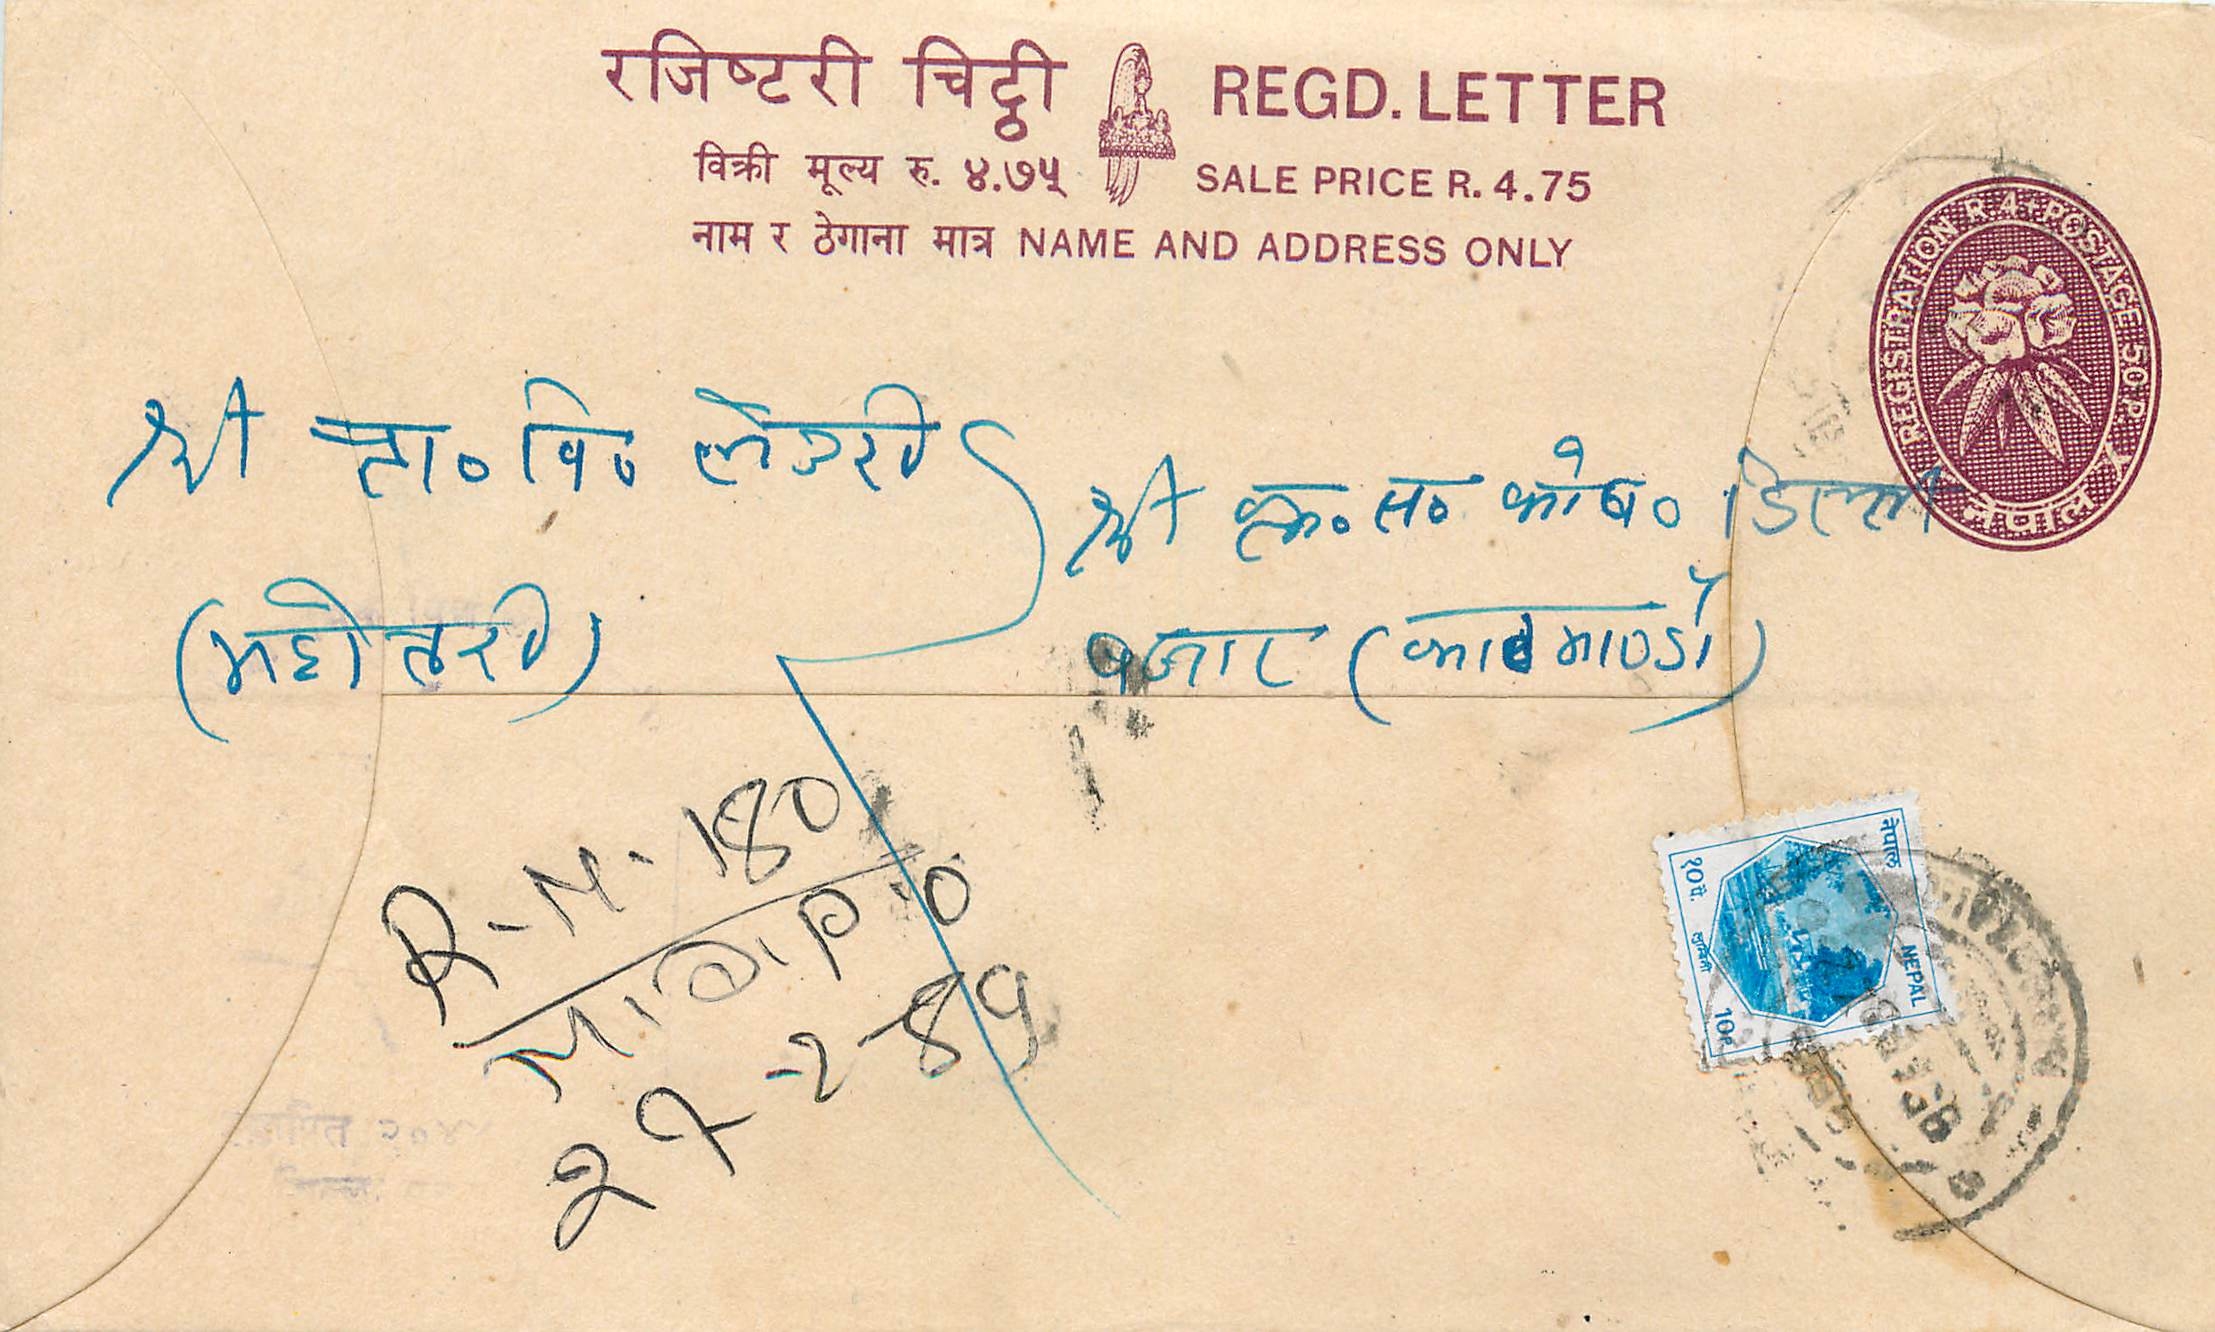 रजिष्टरी चिट्ठी REGD. LETTER
विक्री मूल्य रु. ४.७५ SALE PRICE R. 4.75
नाम र ठेगाना मात्र NAME AND ADDRESS ONLY
REGISTRATION R 4+POSTAGE 50 P.
नेपाल
श्री ता० वि०
(महोत्तरी)
श्री का० स० कोष० डिल्ली
बजार (काठमाण्डौ)
R-N-180
P.O
नेपाल
१० पै.
लुम्बिनी
NEPAL
10P.